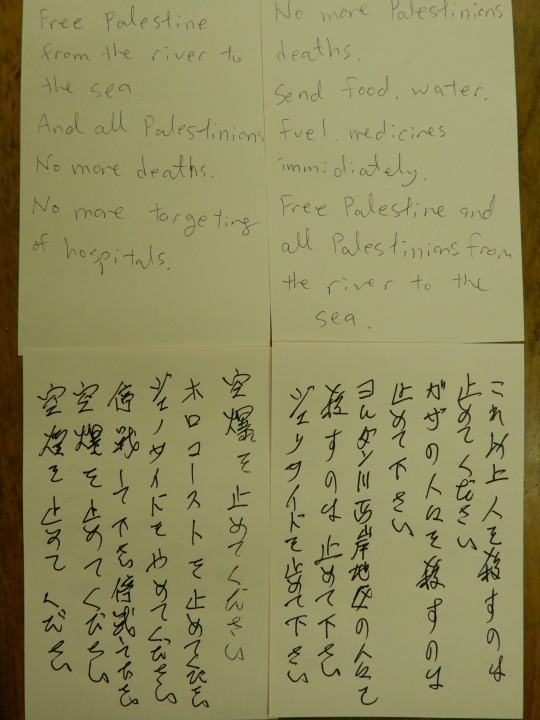 Free Palestine
from the river to
the sea.
And all Palestinians
No more deaths.
No more targeting
of hospitals.
No more Palestinians
deaths.
Send food, water,
fuel, medicines
immidiately.
Free Palestine and
all Palestinians from
the river to the
sea.
空爆を止めてください
ホロコーストを止めてください
ジェノサイドをやめてください
停戦して下さい停戦して下さい
空爆を止めてください
空爆を止めてください
これ以上人を殺すのは
止めてください
ガザの人々を殺すのは
止めて下さい
ヨルダン川西岸地区の人々を
殺すのは止めて下さい
ジェノサイドを止めて下さい